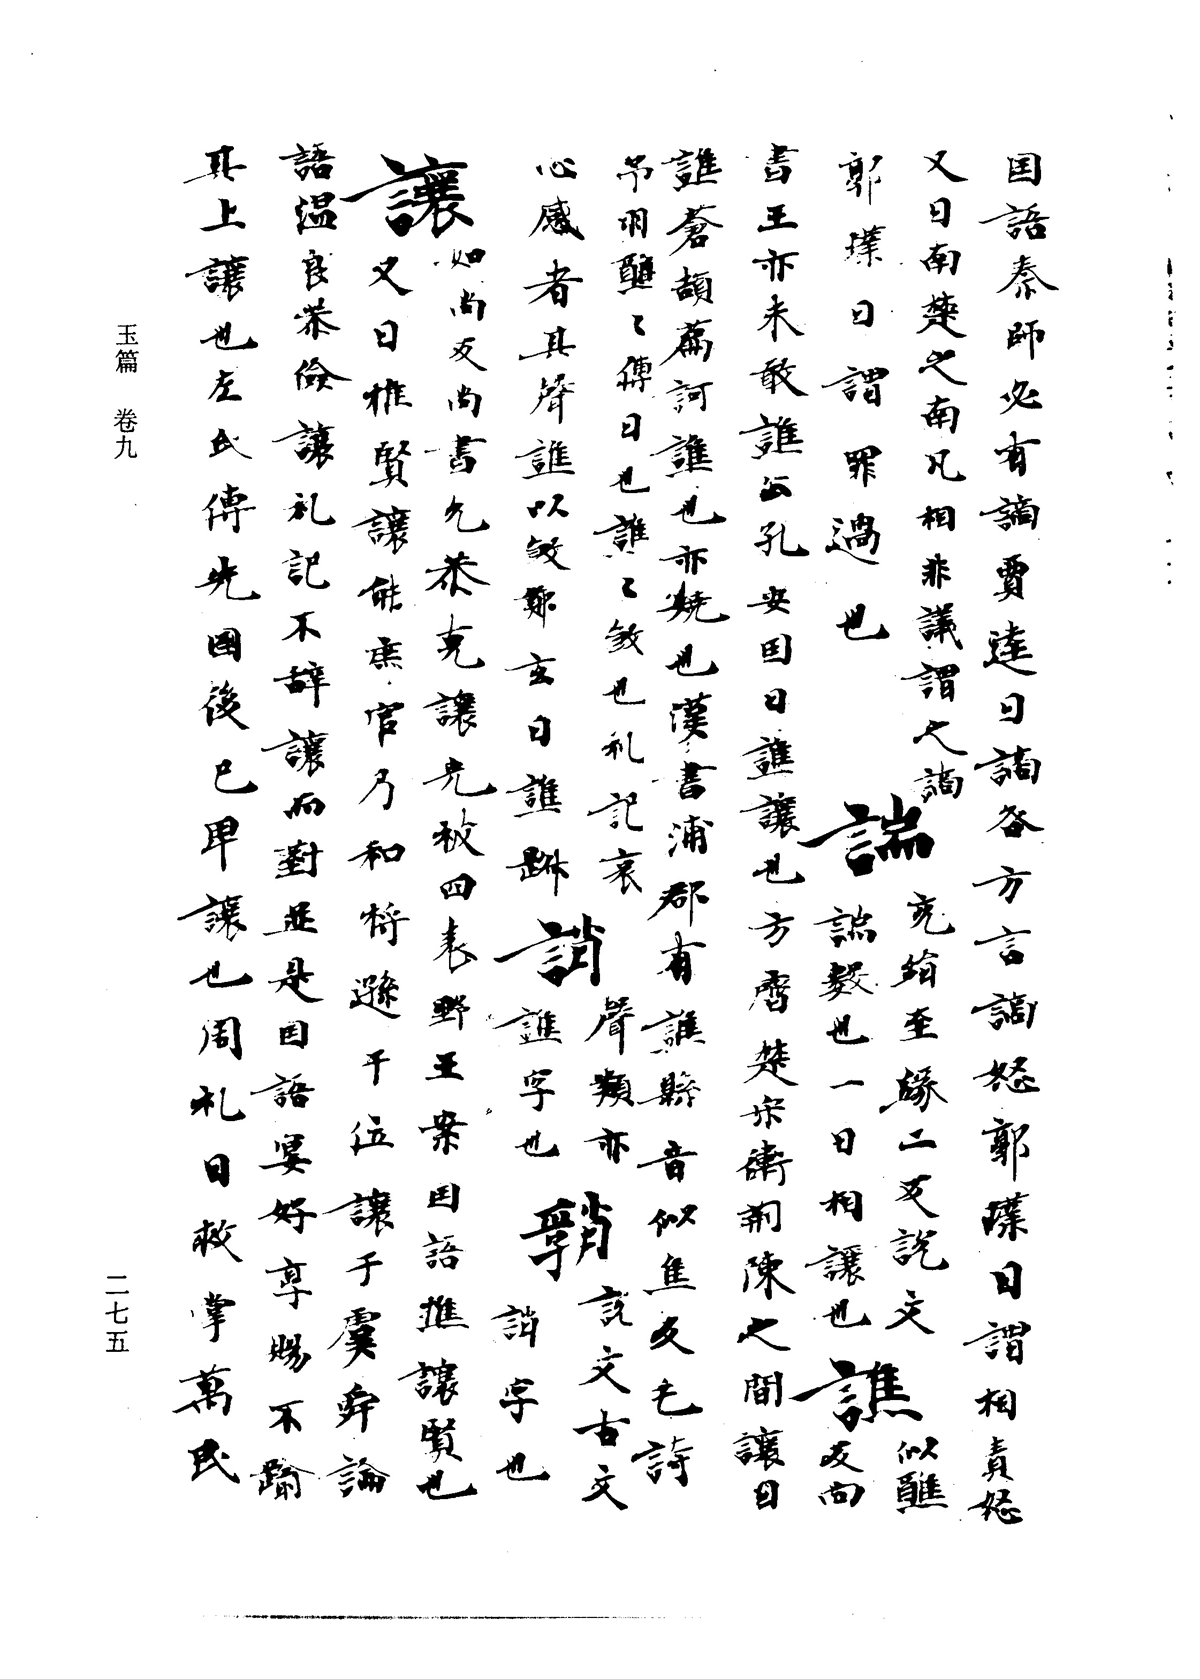 囯語秦師必有謫賈逵曰謫咎方言謫怒郭璞曰謂相責怒
又曰南楚之南凡相非議謂之謫
郭璞曰謂罪過也
諯
充絹至緣二反說文
諯數也一曰相讓也
譙
似醮
反尚
書王亦未敢譙公孔安囯曰譙讓也方言齊楚宋衛荊陳之間讓曰
譙蒼頡篇訶譙也亦嬈也漢書浦郡有譙縣音似焦反毛詩
予羽譙〻傳曰也譙〻敓也礼記哀
心感者其聲譙以敓鄭玄曰譙
誚
聲類亦
譙字也
說文古文
誚字也
讓
如尚反尚書允恭克讓光被四表野王案囯語推讓賢也
又曰推賢讓能庶官乃和將遜于位讓于虞舜論
語温良恭儉讓礼記不辞讓而對並是囯語宴好享賜不踰
其上讓也左氏傳先國後己卑讓也周礼曰救掌萬民
玉篇 卷九
二七五